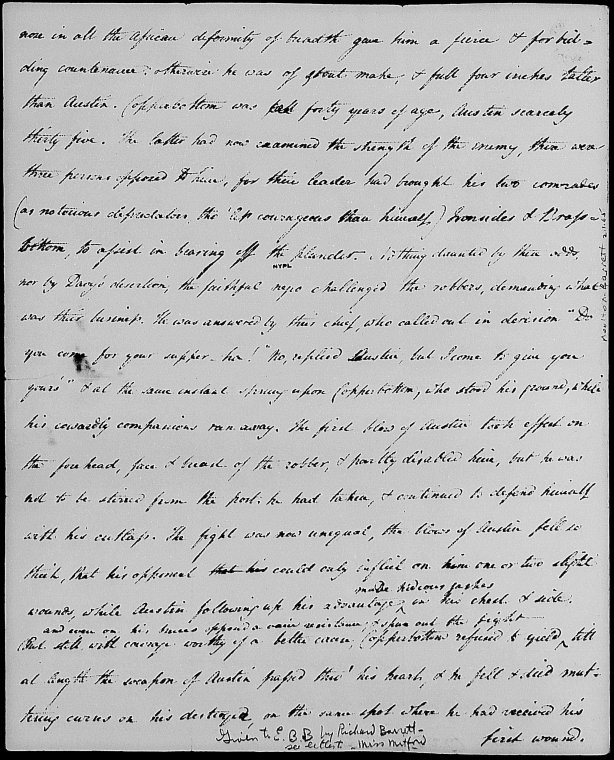 nose in all the African deformity of breadth gave him a fierce & forbid=
ding countenance: otherwise he was of stout make, & full four inches taller
than Austin. Copperbottom was forty years of age, Austin scarcely
thirty five. The latter had now examined the strength of the enemy, there were
three persons opposed to him, for their leader had brought his two comrades
(as notorious depredators, tho' less courageous than himself) Ironsides & Brass=
bottom, to assist in bearing off the plunder. Nothing daunted by these odds,
NYPL
nor by Davy's desertion, the faithful negro challenged the robbers, demanding what
was their business. He was answered by their chief, who called out in derision "Do
you come for your supper - ha!" "No, replied Austin, but I come to give you
yours" & at the same instant sprung upon Copperbottom, who stood his ground, while
his cowardly companions ran away. The first blow of Austin took effect on
the forehead, face & breast of the robber, & partly disabled him, but he was
not to be stirred from the post he had taken, & continued to defend himself
with his cutlass. The fight was now unequal, the blows of Austin fell so
thick, that his opponent that his could only inflict on him one or two slight
made hideous gashes
wounds, while Austin following up his advantage, in his chest & side.
and even on his knees opposed a vain resistance, & spun out the fight
But still with courage worthy of a better cause, Copperbottom refused to yield, till
at length the weapon of Austin passed thro' his heart, & he fell & died mut=
tering curses on his destroyer, on the same spot where he had received his
first wound.
Given to E.B.B by Richard Barrett -
see letters - Miss Mitford